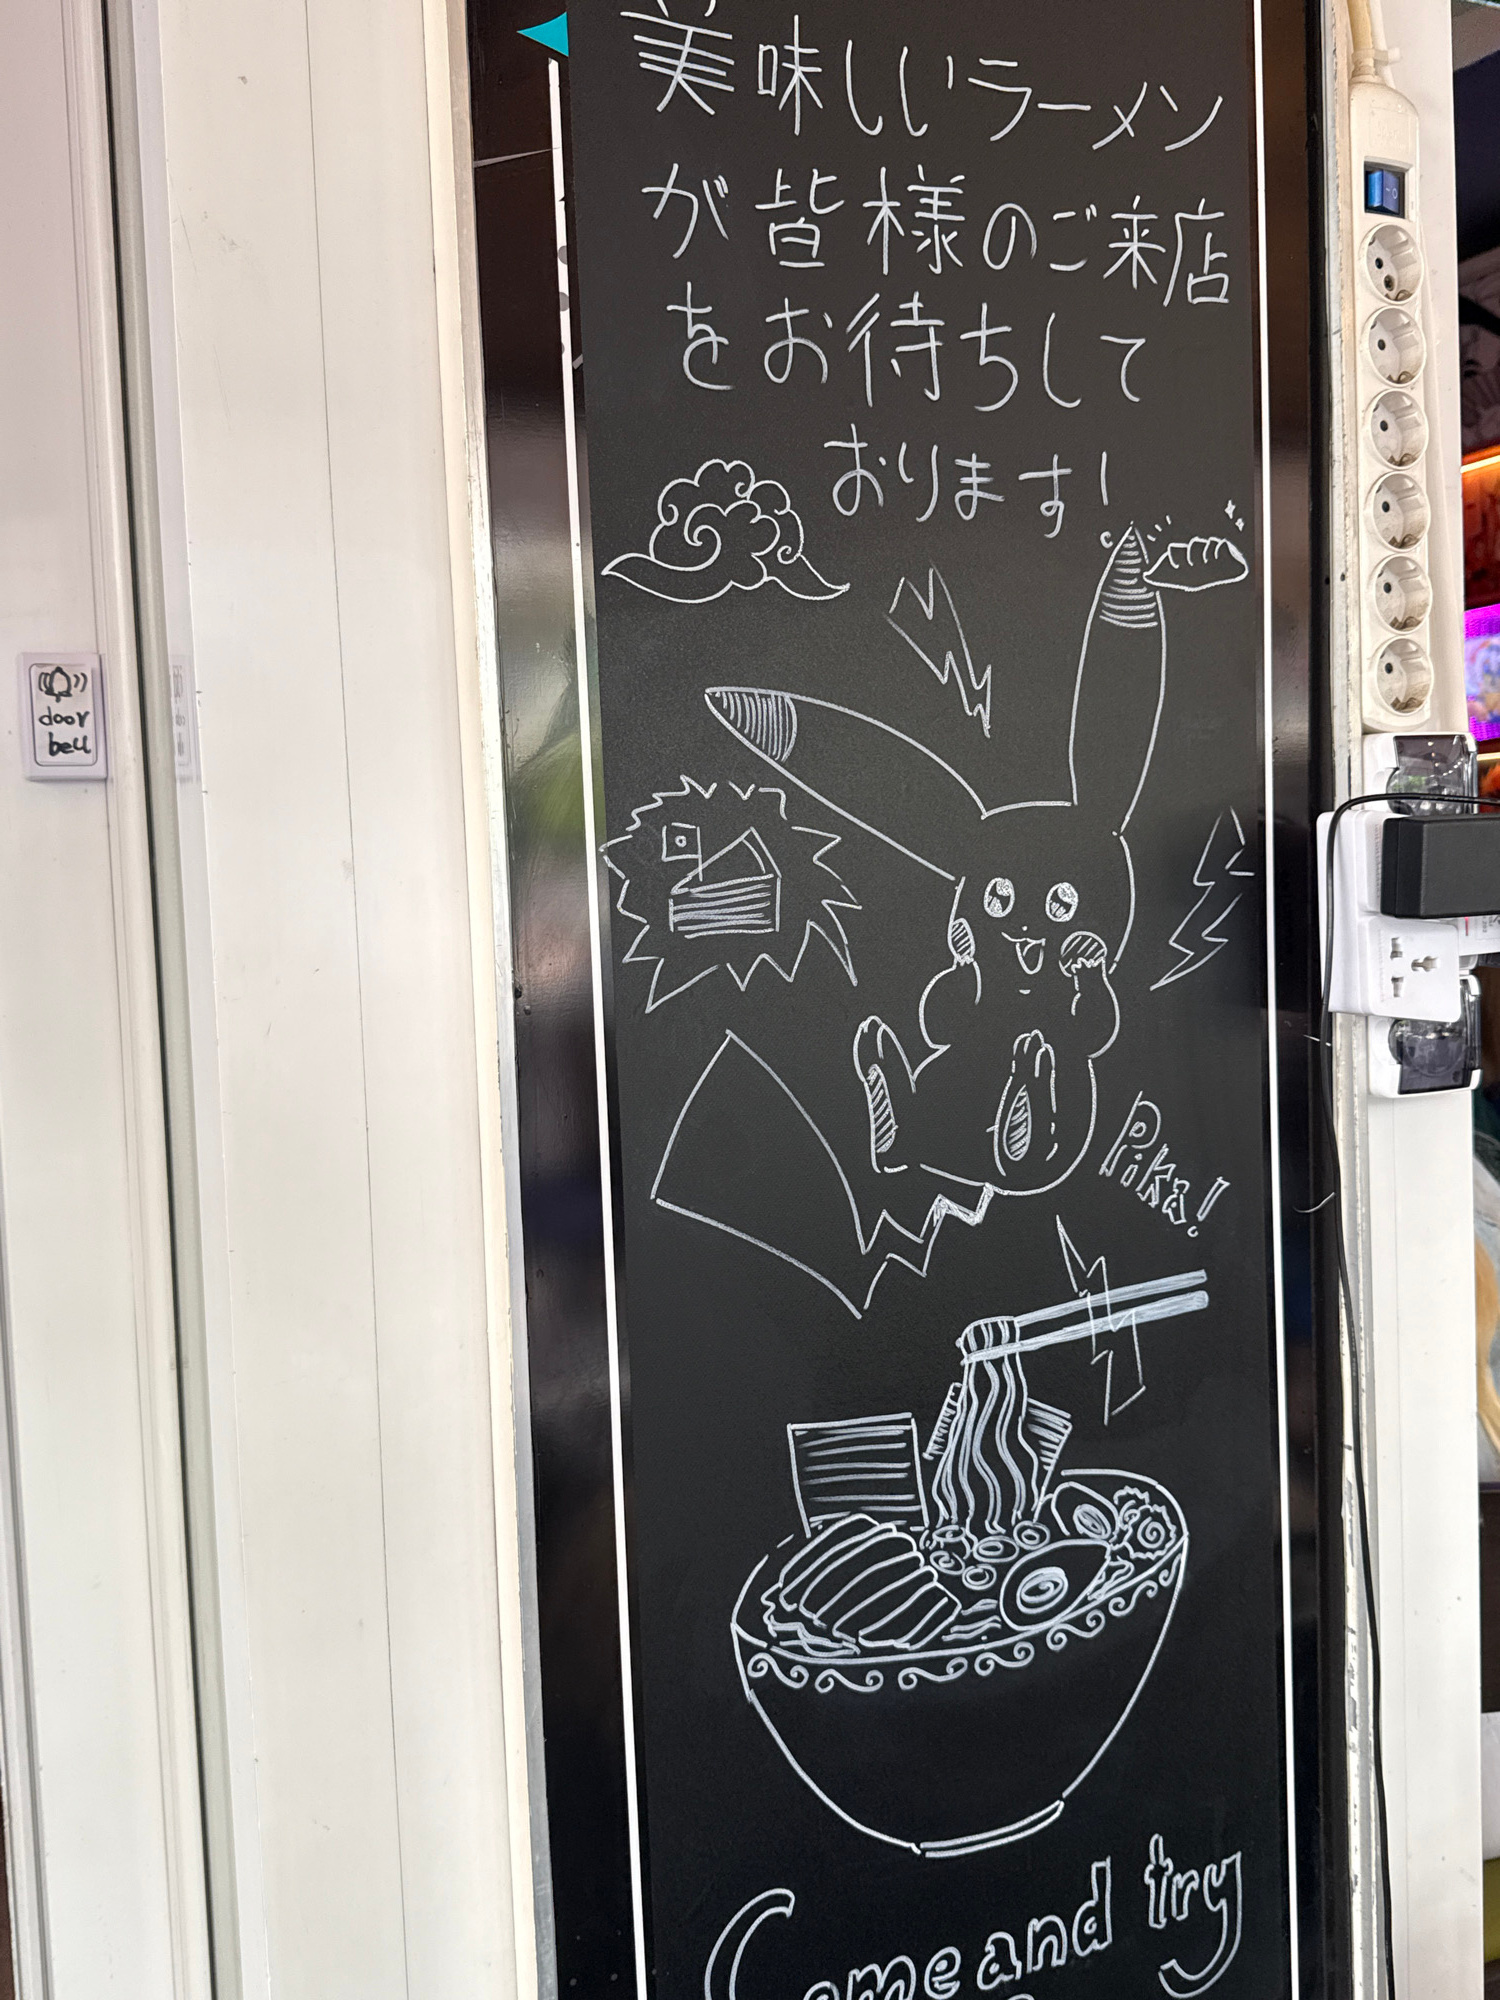 美味しいラーメン
が皆様のご来店
をお待ちして
おります!
door
bell
Pika!
Come and try